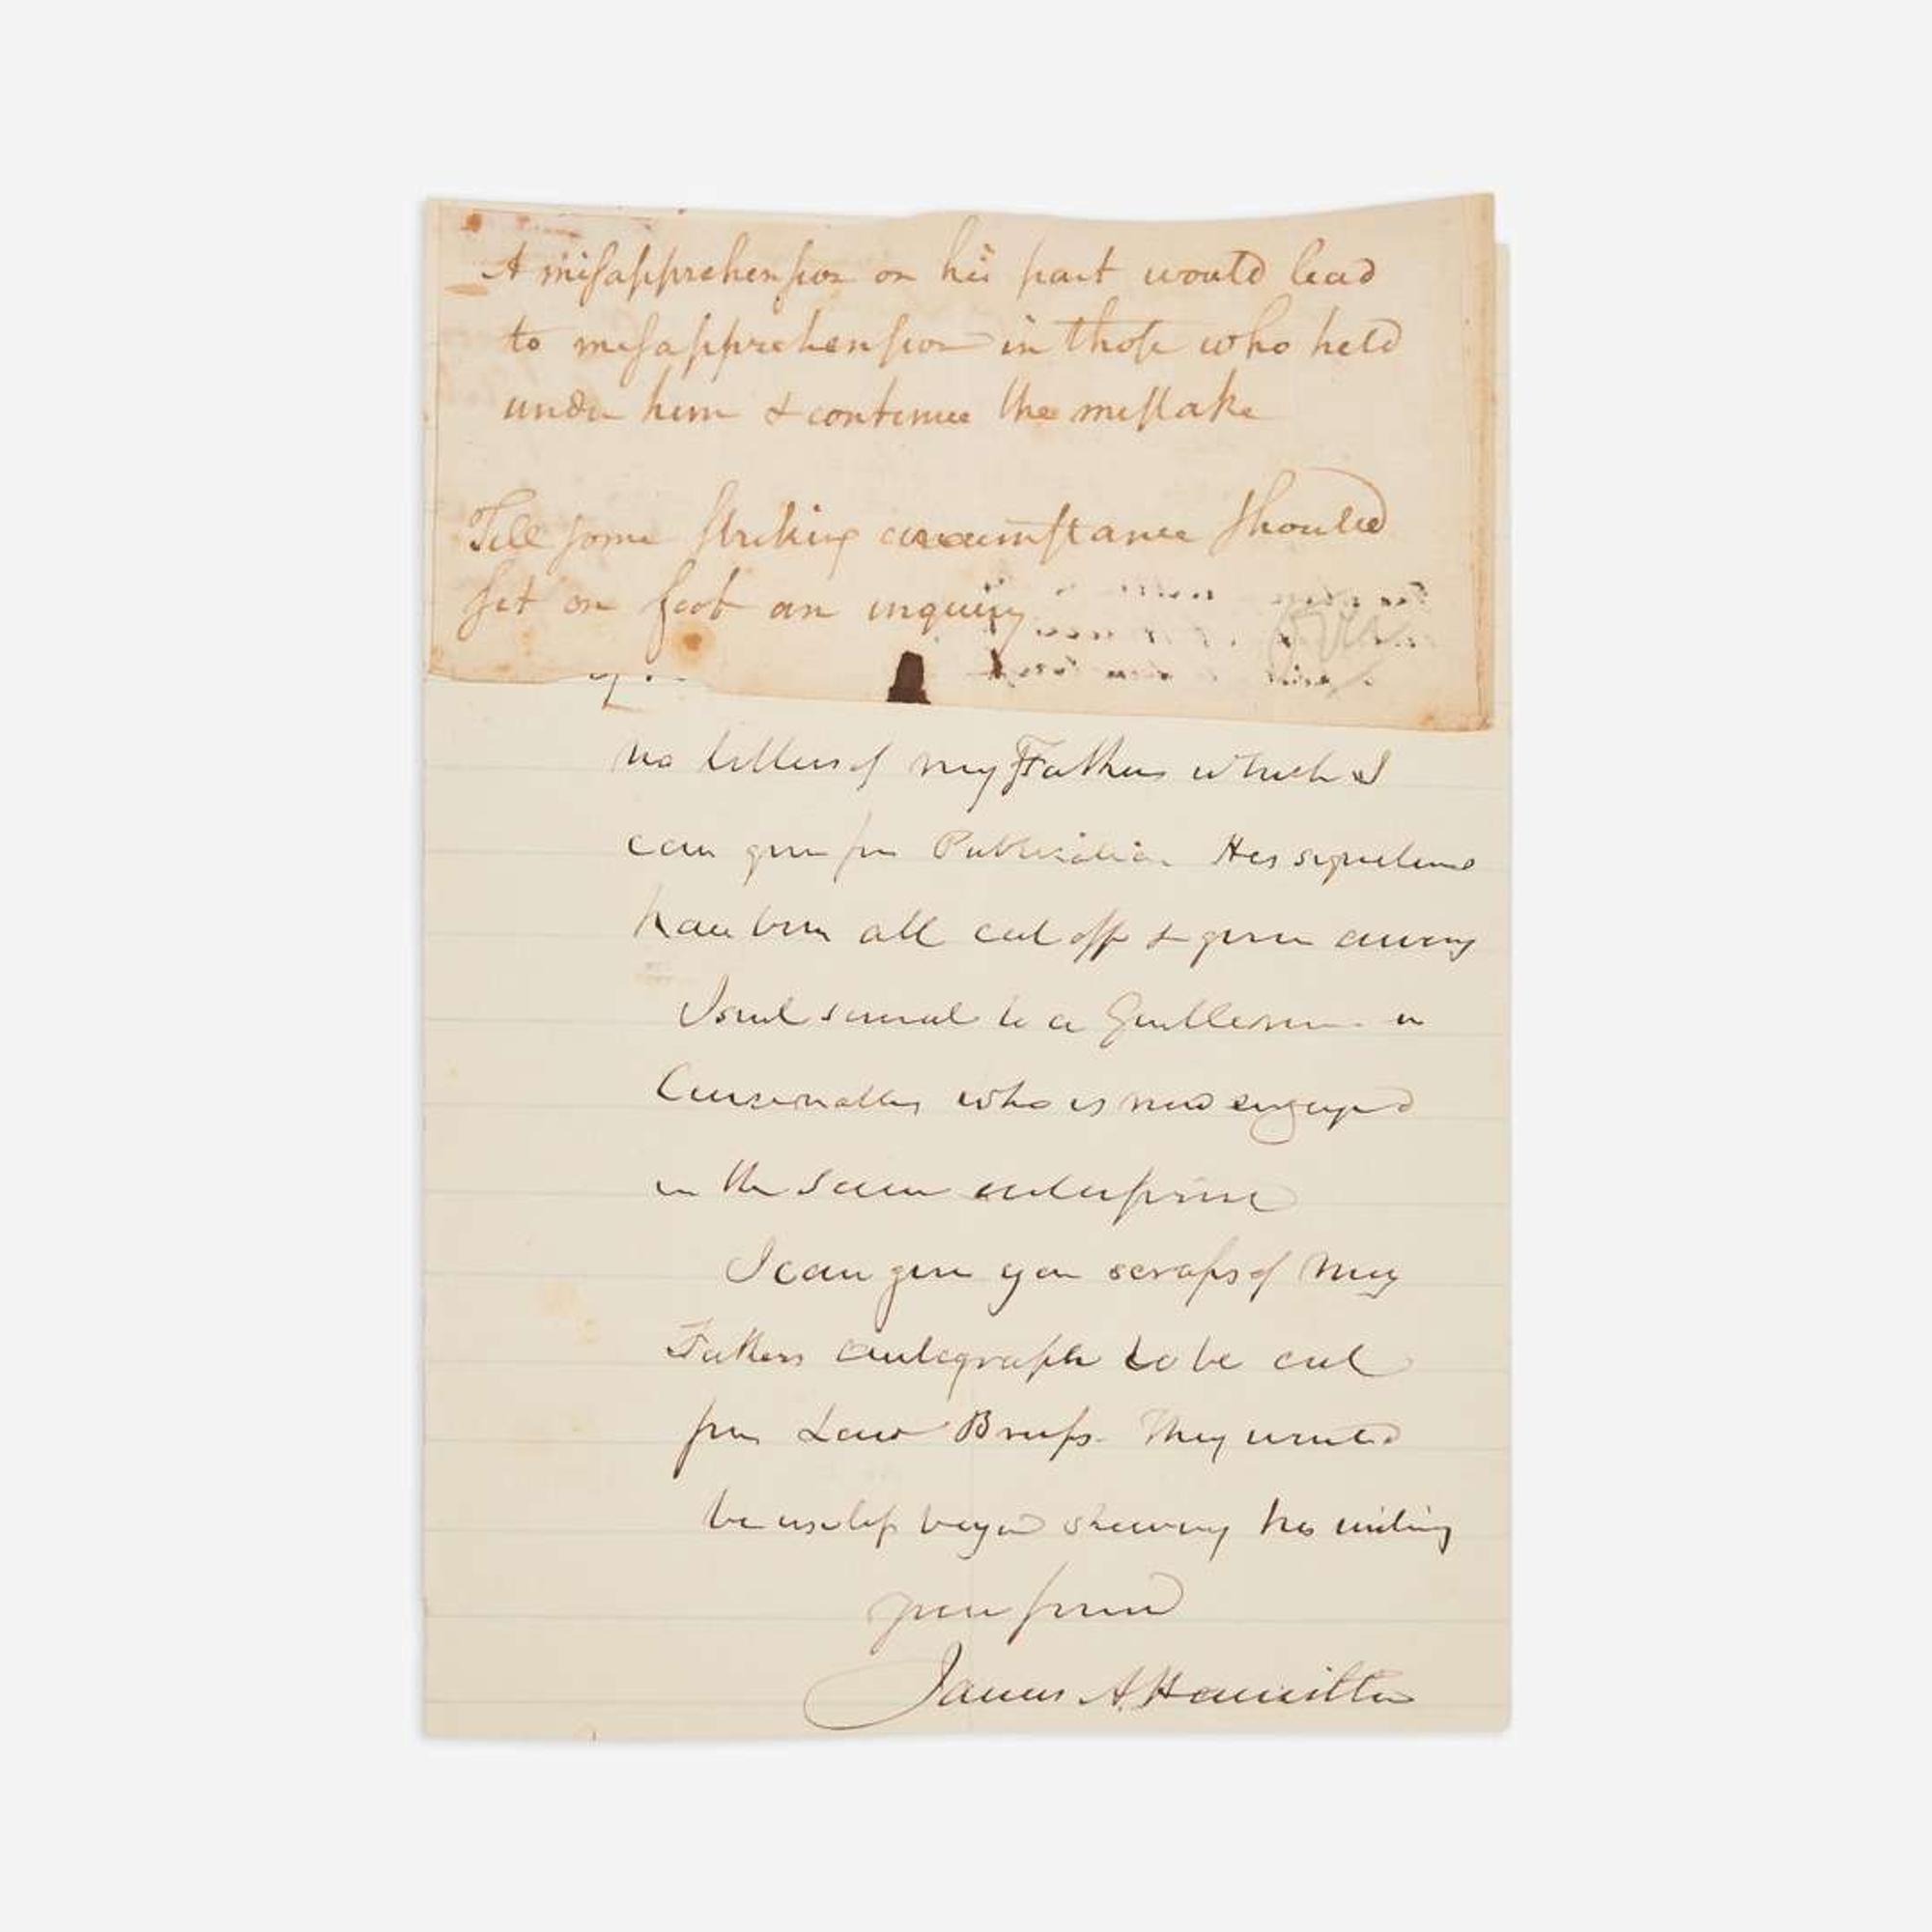 A misapprehension on his part would lead
to misapprehension in those who held
under him & continue the mistake
Till some striking circumstance should
set on foot an inquiry
no letters of my Fathers which I
can give for Publication His signatures
have been all cut off & given away
I sent several to a Gentleman in
Cincinnatti who is now engaged
in the same enterprise
I can give you scraps of my
Fathers autograph to be cut
from Law Briefs. They would
be useless beyond shewing his writing
your friend
James A. Hamilton